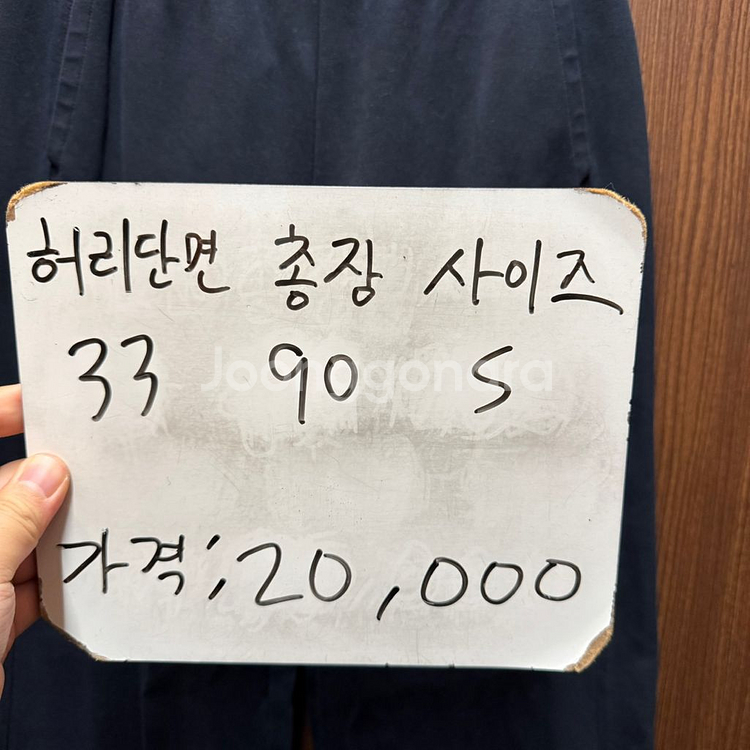 허리단면 총장 사이즈
33 90 S
Joongonara
가격; 20,000